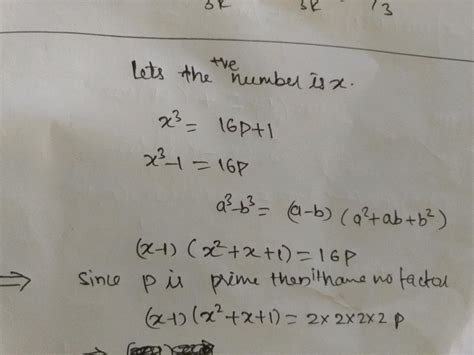 3k 3k 3
Lets the +ve number is x.
x³ = 16P+1
x³-1 = 16P
a³-b³ = (a-b) (a²+ab+b²)
(x-1) (x²+x+1) = 16P
⇒ since p is prime then it have no factor
(x-1) (x²+x+1) = 2×2×2×2 P